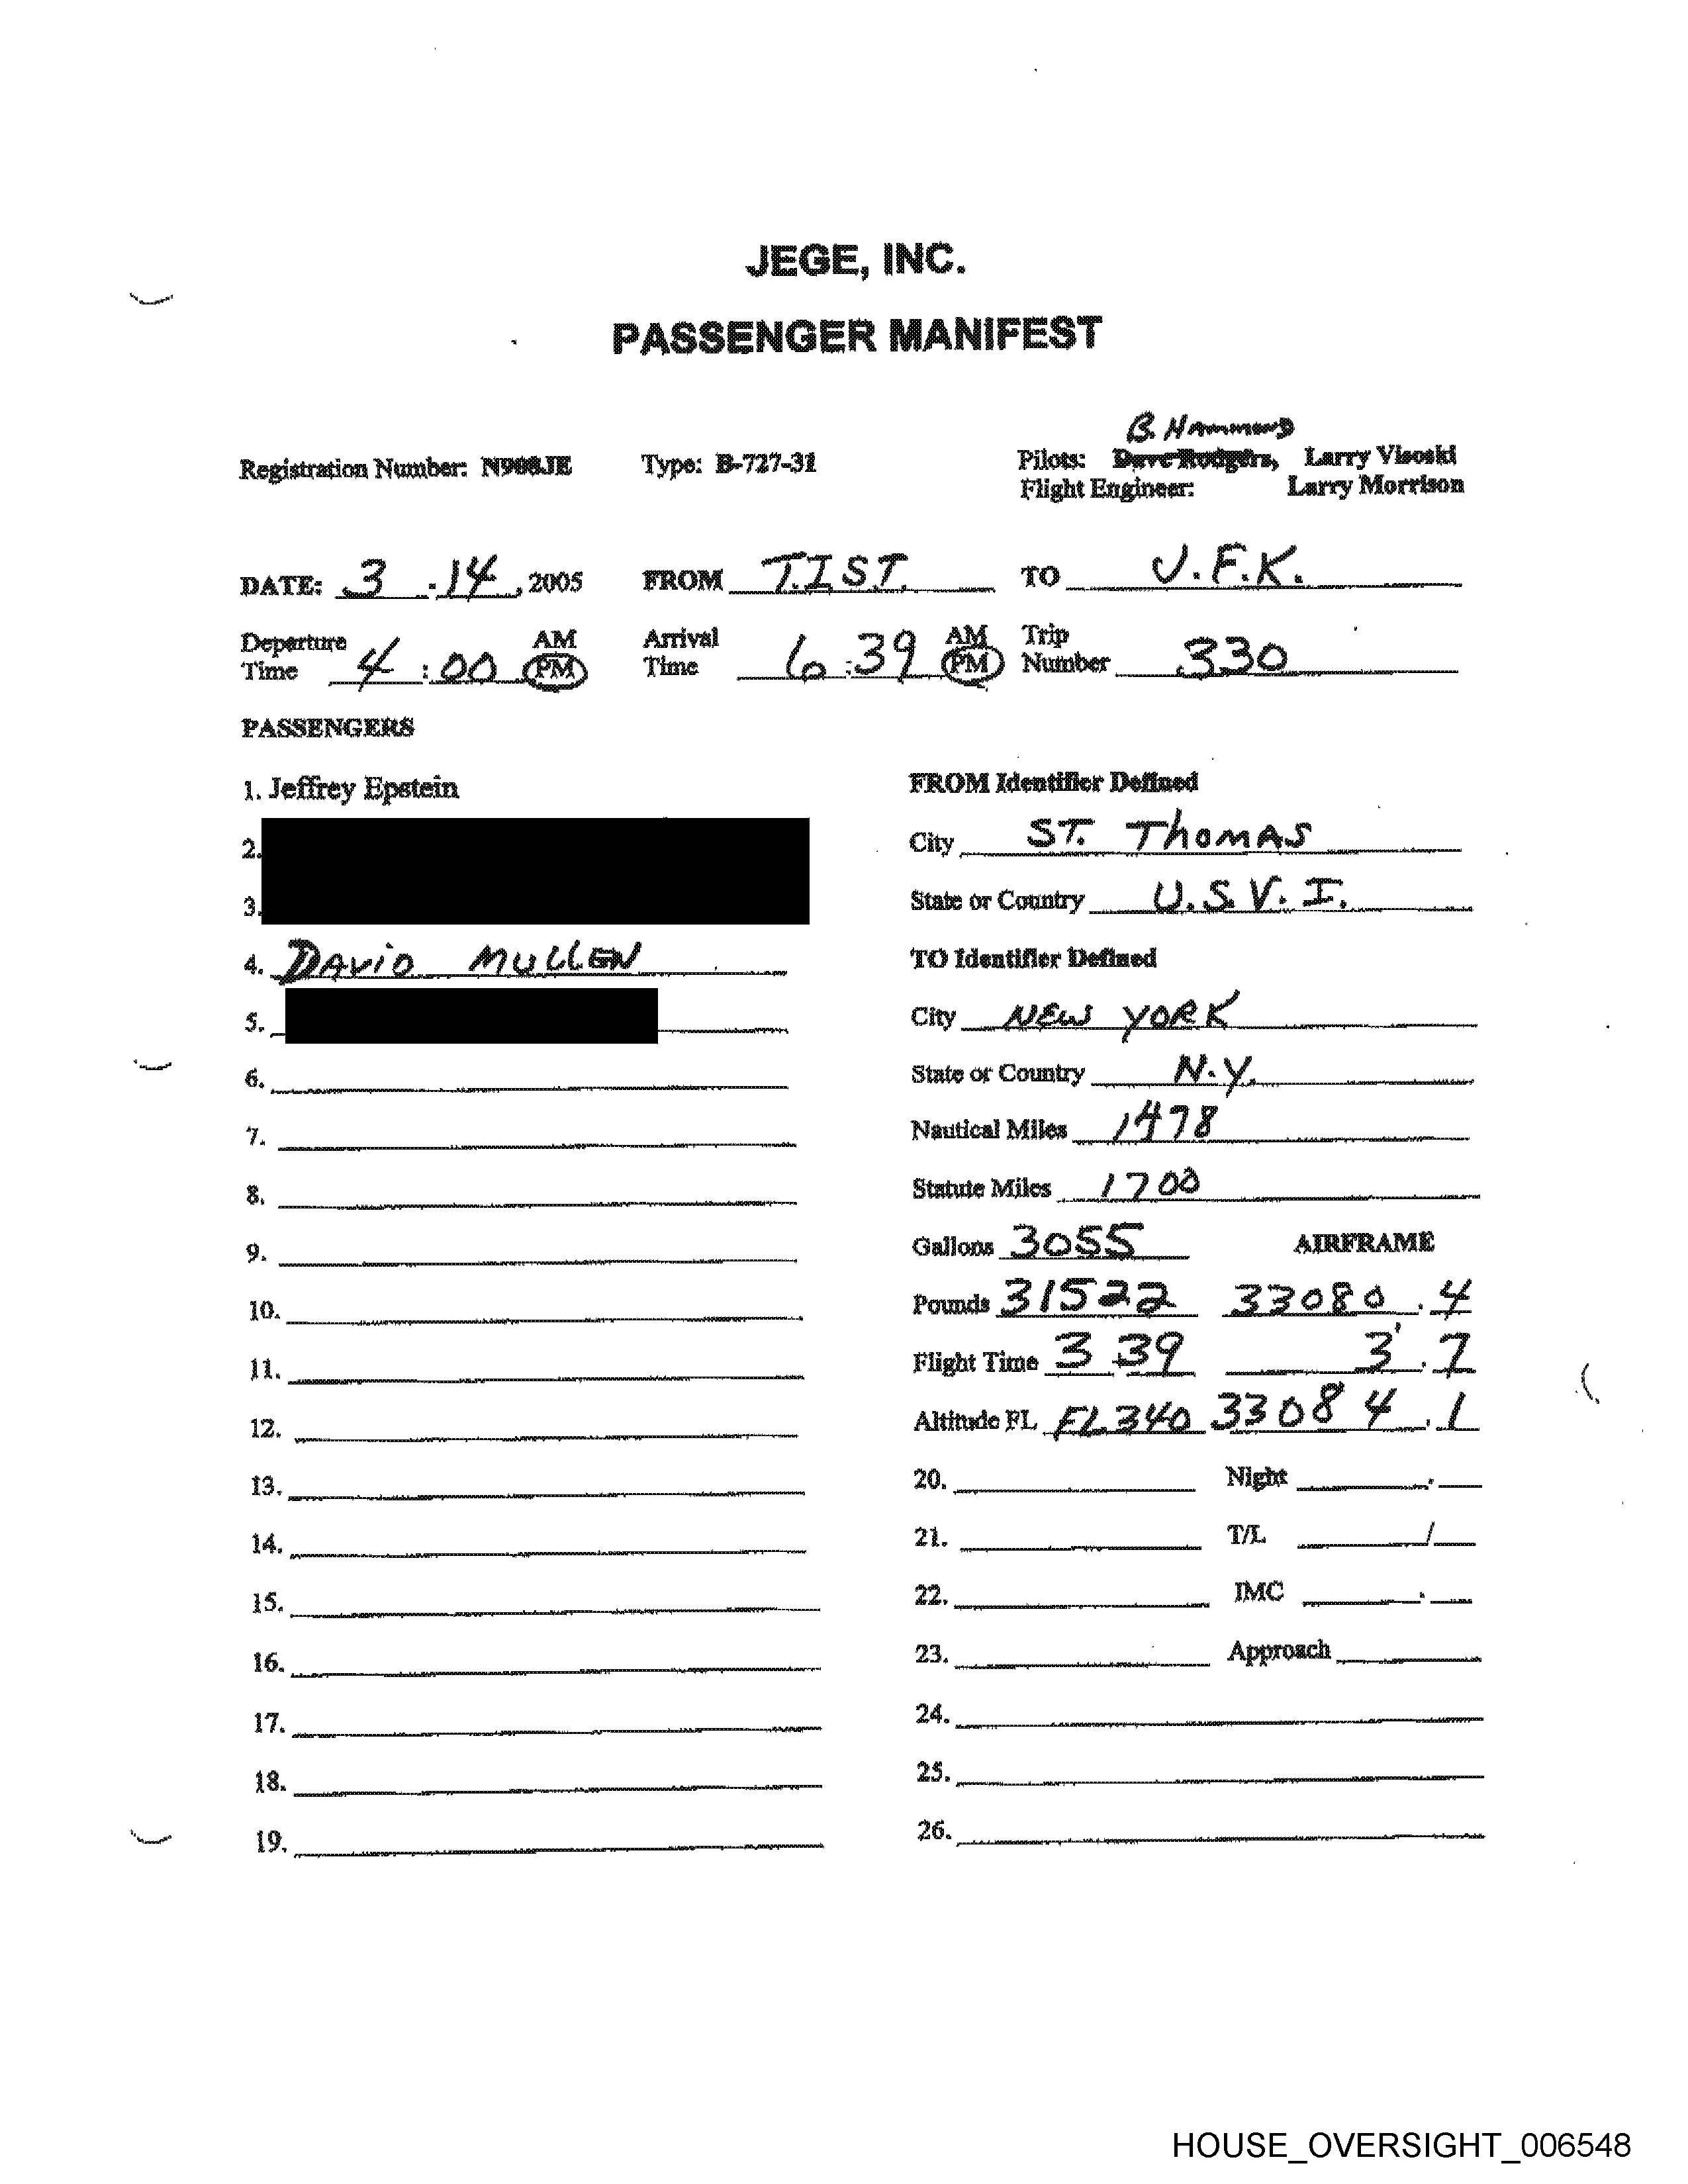 JEGE, INC.
PASSENGER MANIFEST
B. Hammond
Registration Number: N908JE Type: B-727-31 Pilots: Dave Rodgers, Larry Visoski
Flight Engineer: Larry Morrison
DATE: 3 - 14, 2005 FROM T.I.S.T. TO J.F.K.
Departure Time 4:00 AM PM Arrival Time 6:39 AM PM Trip Number 330
PASSENGERS
1. Jeffrey Epstein
2.
3.
4. DAViD MULLEN
5.
6.
7.
8.
9.
10.
11.
12.
13.
14.
15.
16.
17.
18.
19.
FROM Identifier Defined
City ST. ThomAS
State or Country U.S.V.I.
TO Identifier Defined
City NEW YORK
State or Country N.Y.
Nautical Miles 1478
Statute Miles 1700
Gallons 3055 AIRFRAME
Pounds 31522 33080.4
Flight Time 3+39 3.7
Altitude FL FL340 33084.1
20. Night .
21. T/L /
22. IMC .
23. Approach
24.
25.
26.
HOUSE_OVERSIGHT_006548